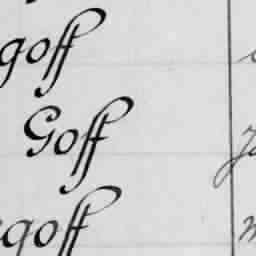 goff
Goff
goff